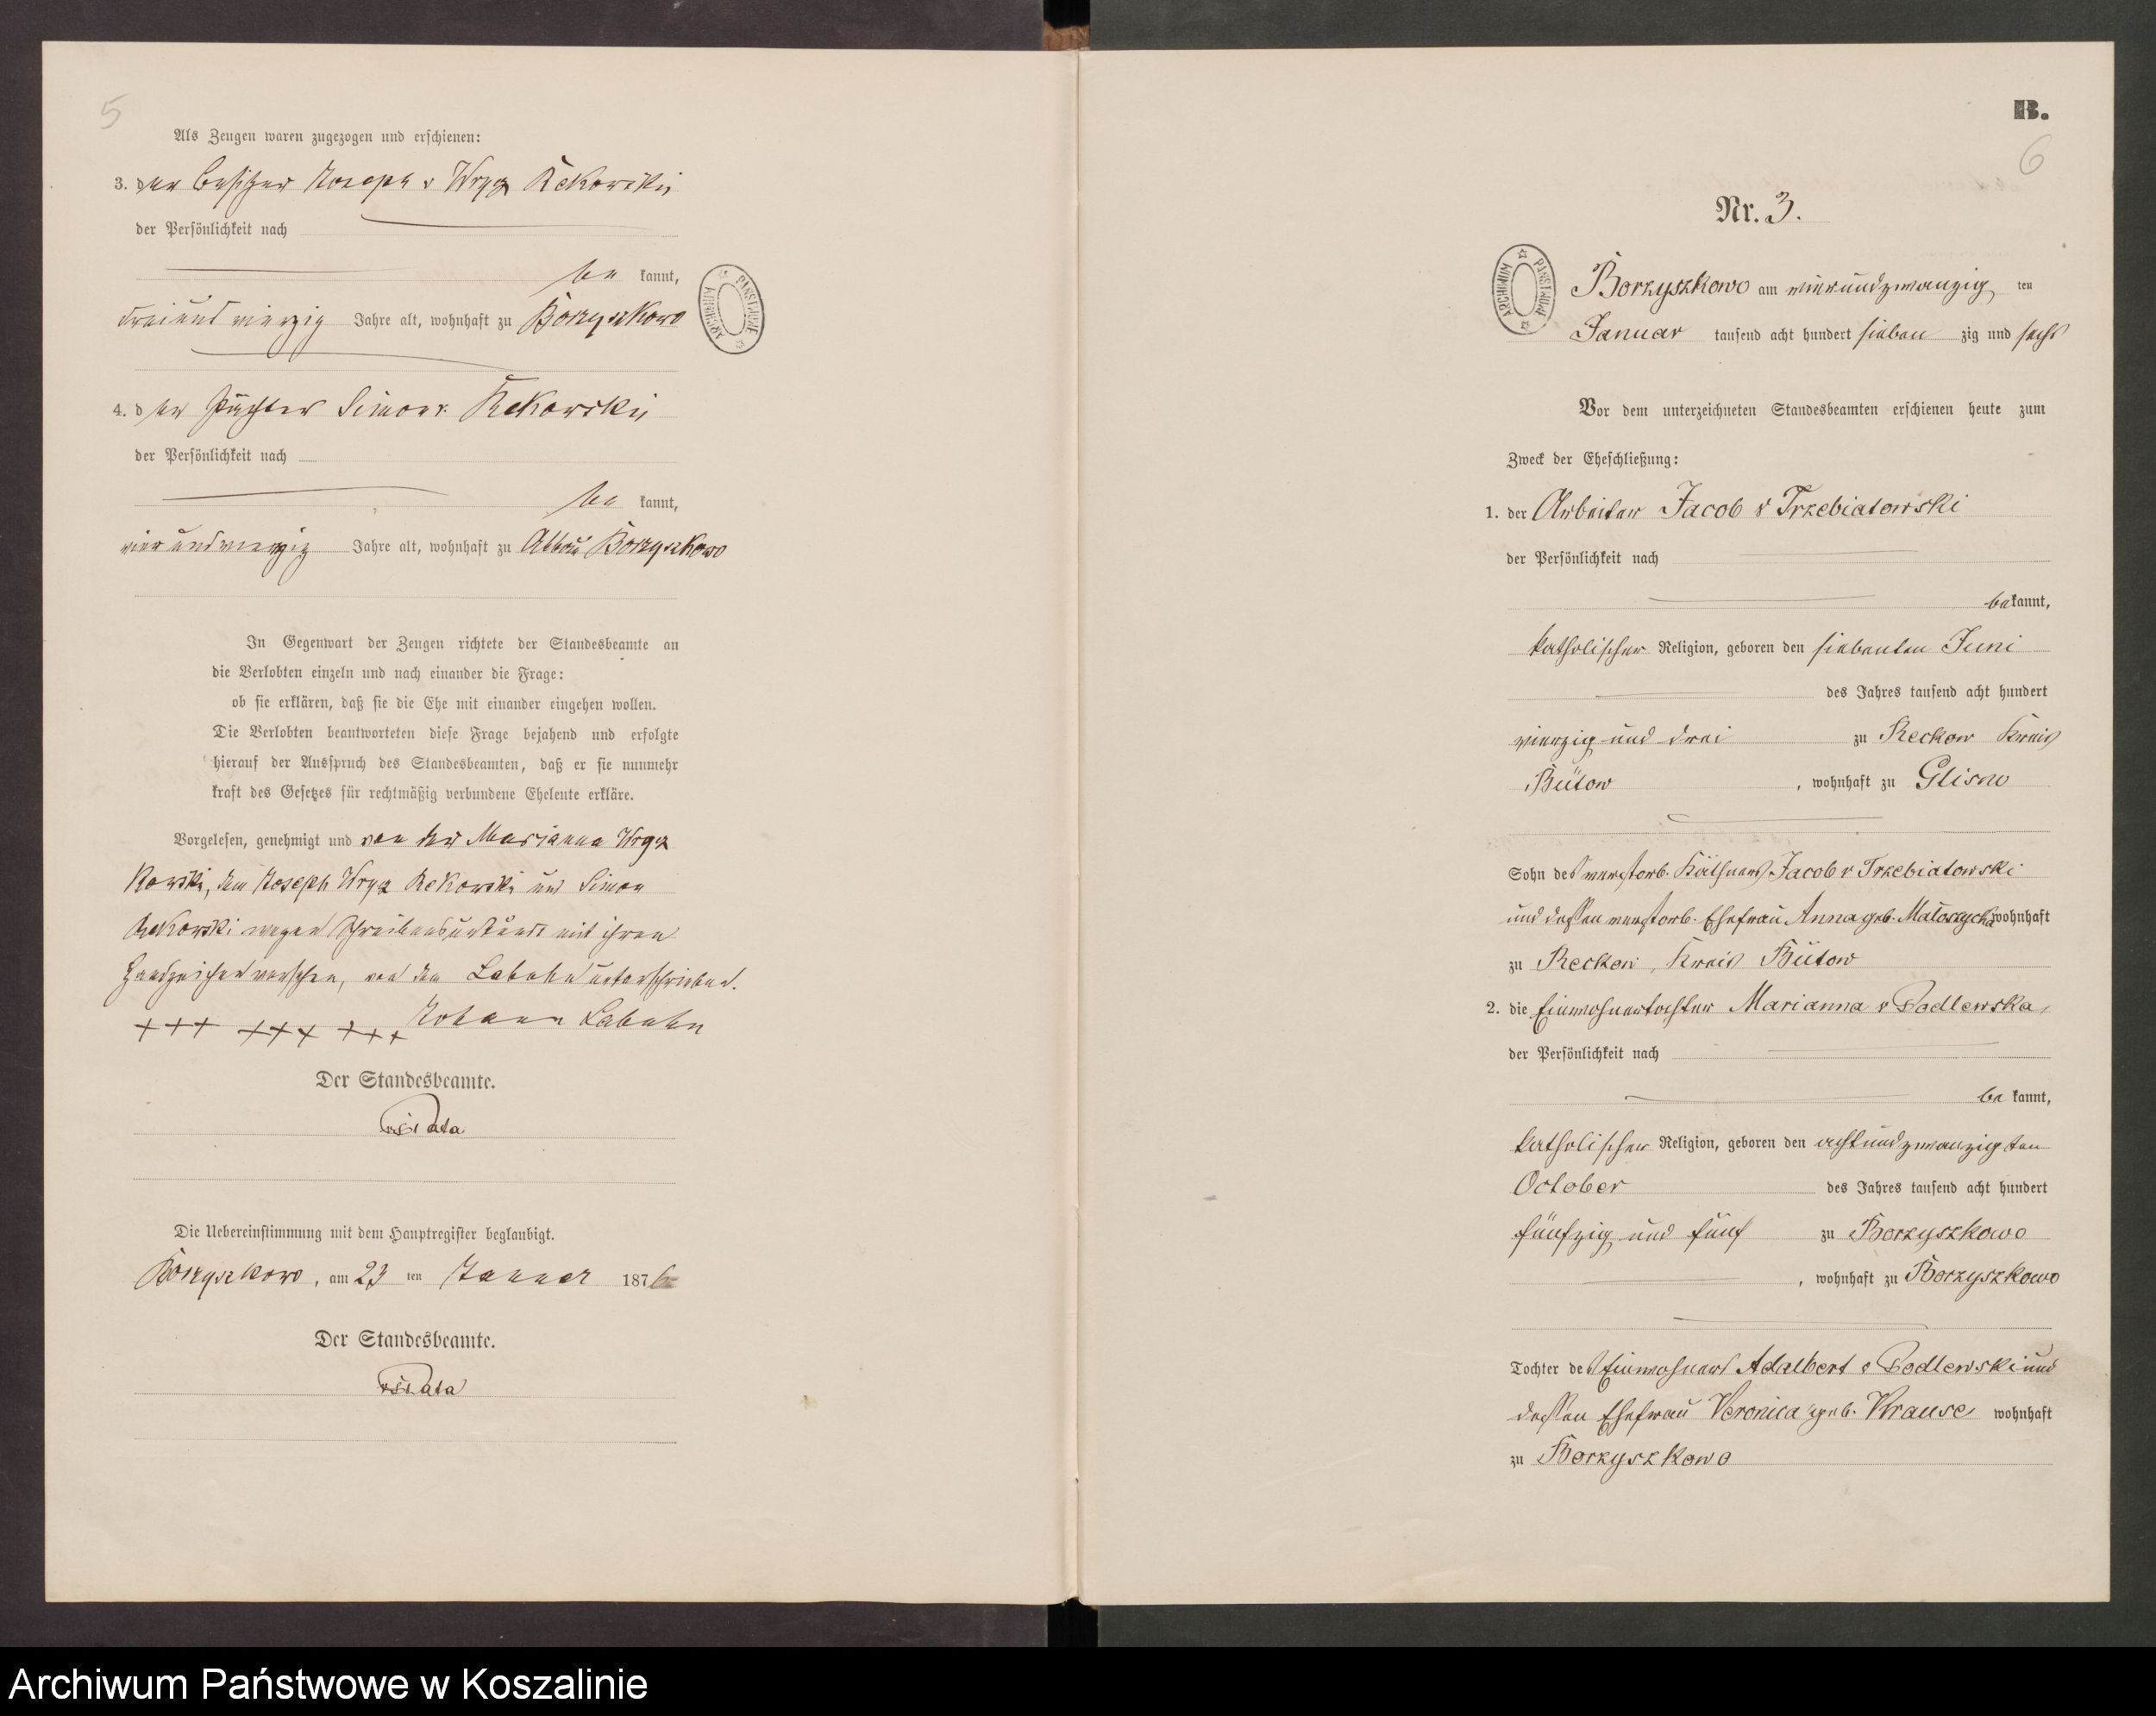 5
Als Zeugen waren zugezogen und erschienen:
3. der Besitzer Joseph v Wrycz Rekowski,
der Persönlichkeit nach
be kannt,
dreiundvierzig Jahre alt, wohnhaft zu Borzyszkowo
4. der Pächter Simon v. Rekowski,
der Persönlichkeit nach
be kannt,
vierundvierzig Jahre alt, wohnhaft zu Abbau Borzyszkowo
In Gegenwart der Zeugen richtete der Standesbeamte an
die Verlobten einzeln und nach einander die Frage:
ob sie erklären, daß sie die Ehe mit einander eingehen wollen.
Die Verlobten beantworteten diese Frage bejahend und erfolgte
hierauf der Ausspruch des Standesbeamten, daß er sie nunmehr
kraft des Gesetzes für rechtmäßig verbundene Eheleute erkläre.
Vorgelesen, genehmigt und von der Marianna Wrycz
Rowski, dem Joseph Wrycz Rekowski und Simon
Rekowski wegen Schreibensunkunde mit ihren
Handzeichen versehen, von dem Labuhn unterschrieben.
+++ +++ +++ Johann Labuhn
Der Standesbeamte.
Die Uebereinstimmung mit dem Hauptregister beglaubigt.
Borzyszkowo, am 23 ten Januar 1876
Der Standesbeamte.
ARCHIWUM PAŃSTWOWE
B.
6
Nr. 3.
ARCHIWUM PAŃSTWOWE
Borzyszkowo am vierundzwanzig ten
Januar tausend acht hundert sieben zig und sechs
Vor dem unterzeichneten Standesbeamten erschienen heute zum
Zweck der Eheschließung:
1. der Arbeiter Jacob v Trzebiatowski
der Persönlichkeit nach
bekannt,
katholischer Religion, geboren den siebenten Juni
des Jahres tausend acht hundert
vierzig und drei zu Reckow Kreis
Bütow, wohnhaft zu Glisno
Sohn des verstorb. Käthners Jacob v Trzebiatowski
und dessen verstorb. Ehefrau Anna geb. wohnhaft
zu Reckow, Kreis Bütow
2. die Einwohnertochter Marianna v Podlewska,
der Persönlichkeit nach
be kannt,
katholischer Religion, geboren den achtundzwanzigten
October des Jahres tausend acht hundert
fünfzig und fünf zu Borzyszkowo
, wohnhaft zu Borzyszkowo
Tochter des Einwohners Adalbert v Podlewski und
dessen Ehefrau Veronica geb. Krause wohnhaft
zu Borzyszkowo
Archiwum Państwowe w Koszalinie